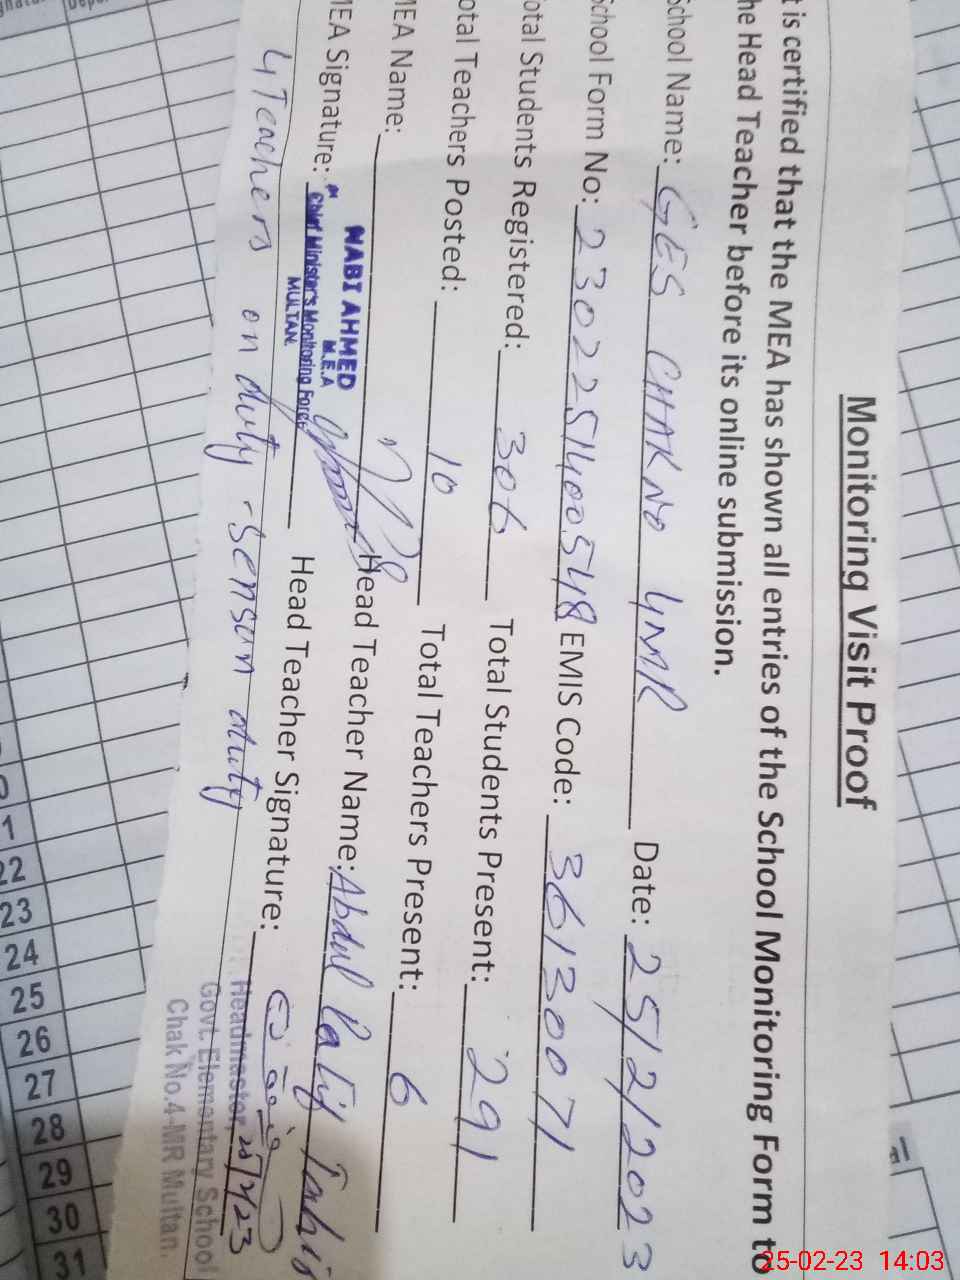 Monitoring Visit Proof
t is certified that the MEA has shown all entries of the School Monitoring Form to
he Head Teacher before its online submission.
School Name: GES CHAK NO 4MR Date: 25/2/2023
School Form No: 2302251400548 EMIS Code: 36130071
otal Students Registered: 306 Total Students Present: 291
otal Teachers Posted: 10 Total Teachers Present: 6
MEA Name: Head Teacher Name: Abdul
NABI AHMED
M.E.A
MEA Signature: Head Teacher Signature:
Chief Minister's Monitoring Force
MULTAN.
4 Teachers on duty - Sensun duty
Headmaster, 25/2/23
Govt. Elementary School
Chak No.4-MR Multan.
22
23
24
25
26
27
28
29
30
31
25-02-23 14:03